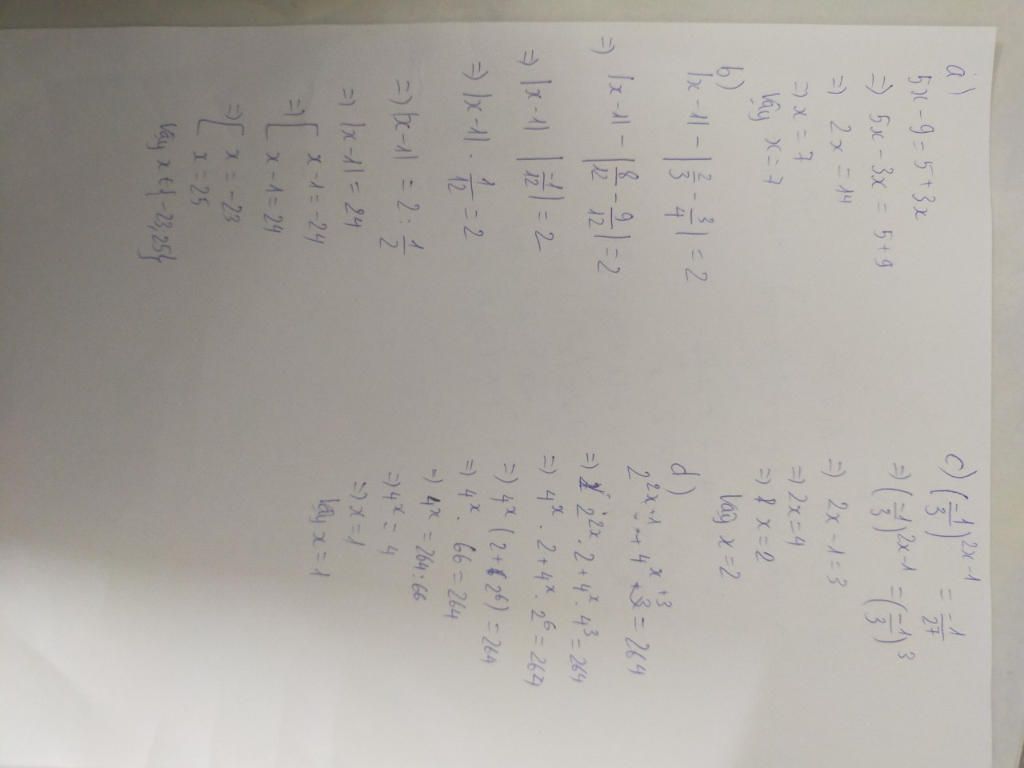 a)
5x - 9 = 5 + 3x
=) 5x - 3x = 5 + 9
=) 2x = 14
=) x = 7
Vậy x = 7
b)
|x - 1| - |2/3 - 3/4| = 2
=) |x - 1| - |8/12 - 9/12| = 2
=) |x - 1| |-1/12| = 2
=) |x - 1| . 1/12 = 2
=) |x - 1| = 2 : 1/2
=) |x - 1| = 24
=) [ x - 1 = -24
x - 1 = 24
=) [ x = -23
x = 25
Vậy x ∈ { -23, 25}
c) (-1/3)^2x-1 = -1/27
=) (-1/3)^2x-1 = (-1/3)^3
=) 2x - 1 = 3
=) 2x = 4
=) x = 2
Vậy x = 2
d)
2^2x+1 + 4^x+3 = 264
=) 2^2x . 2 + 4^x . 4^3 = 264
=) 4^x . 2 + 4^x . 2^6 = 264
=) 4^x (2 + 2^6) = 264
=) 4^x . 66 = 264
=) 4^x = 264 : 66
=) 4^x = 4
=) x = 1
Vậy x = 1